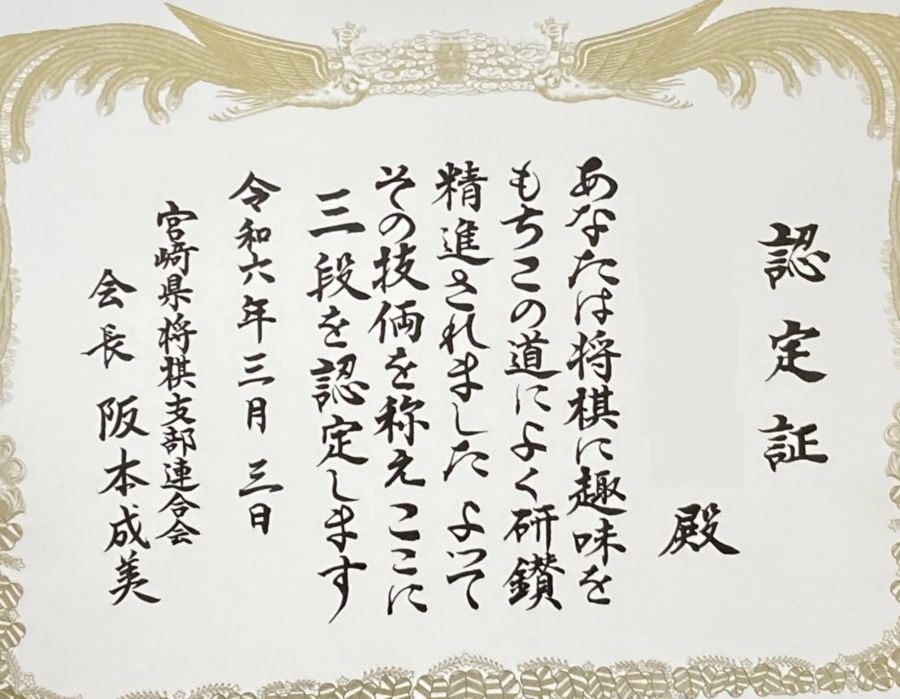 認定証
殿
あなたは将棋に趣味を
もちこの道によく研鑚
精進されました よって
その技倆を称えここに
三段を認定します
令和六年三月三日
宮崎県将棋支部連合会
会長 阪本成美